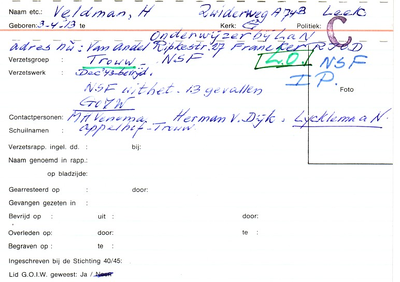 Naam etc.: Veldman, H Zuiderweg A 74B Leek
Geboren: 3-4-13 te Kerk: G Politiek: C
Onderwijzer by L&N
adres nu: Van Andel Ripkestr. 27 Franeker
Verzetsgroep : Trouw - NSF L.O. NSF
Verzetswerk : Dec '43 - bevryd. I P.
NSF uithet. 13 gevallen Foto
GOIW
Contactpersonen: MH Venema, Herman v. Dijk, Lycklema a N.
Schuilnaam : Appelhof-Trouw
Verzetsrapp. ingel. dd. : bij:
Naam genoemd in rapp.:
op bladzijde:
Gearresteerd op : door:
Gevangen gezeten in :
Bevrijd op : uit : door:
Overleden op: door: te :
Begraven op : te :
Ingeschreven bij de Stichting 40/45:
Lid G.O.I.W. geweest: Ja / Neen